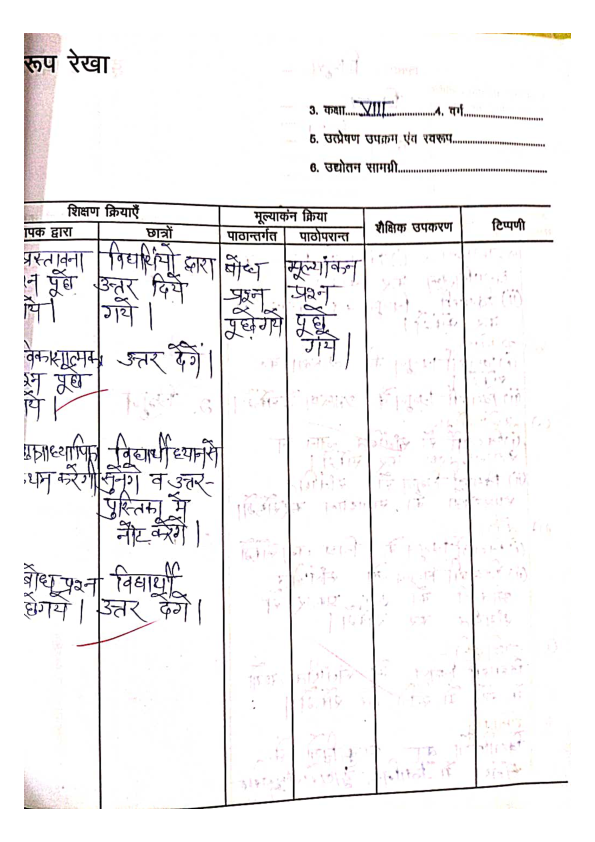 रूप रेखा
3. कक्षा....VIII............4. वर्ग....................
5. उत्प्रेषण उपक्रम एंव स्वरूप....................
6. उद्योतन सामग्री....................
शिक्षण क्रियाएँ
मूल्याकंन क्रिया
शैक्षिक उपकरण
टिप्पणी
पक द्वारा
छात्रों
पाठान्तर्गत
पाठोपरान्त
प्रस्तावना
न पूछे
गये।
विद्यार्थियों द्वारा
उत्तर दिये
गये।
बोध
प्रश्न
पूछे गये
मूल्यांकन
प्रश्न
पूछे
गये।
विकासात्मक
श्न पूछे
गये।
उत्तर देगें।
छात्राध्यापिका
थन करेगी
विद्यार्थी ध्यान से
सुनेंगे व उत्तर-
पुस्तिका में
नोट करेंगे।
बोध प्रश्न
छे गये।
विद्यार्थी
उत्तर देगें।